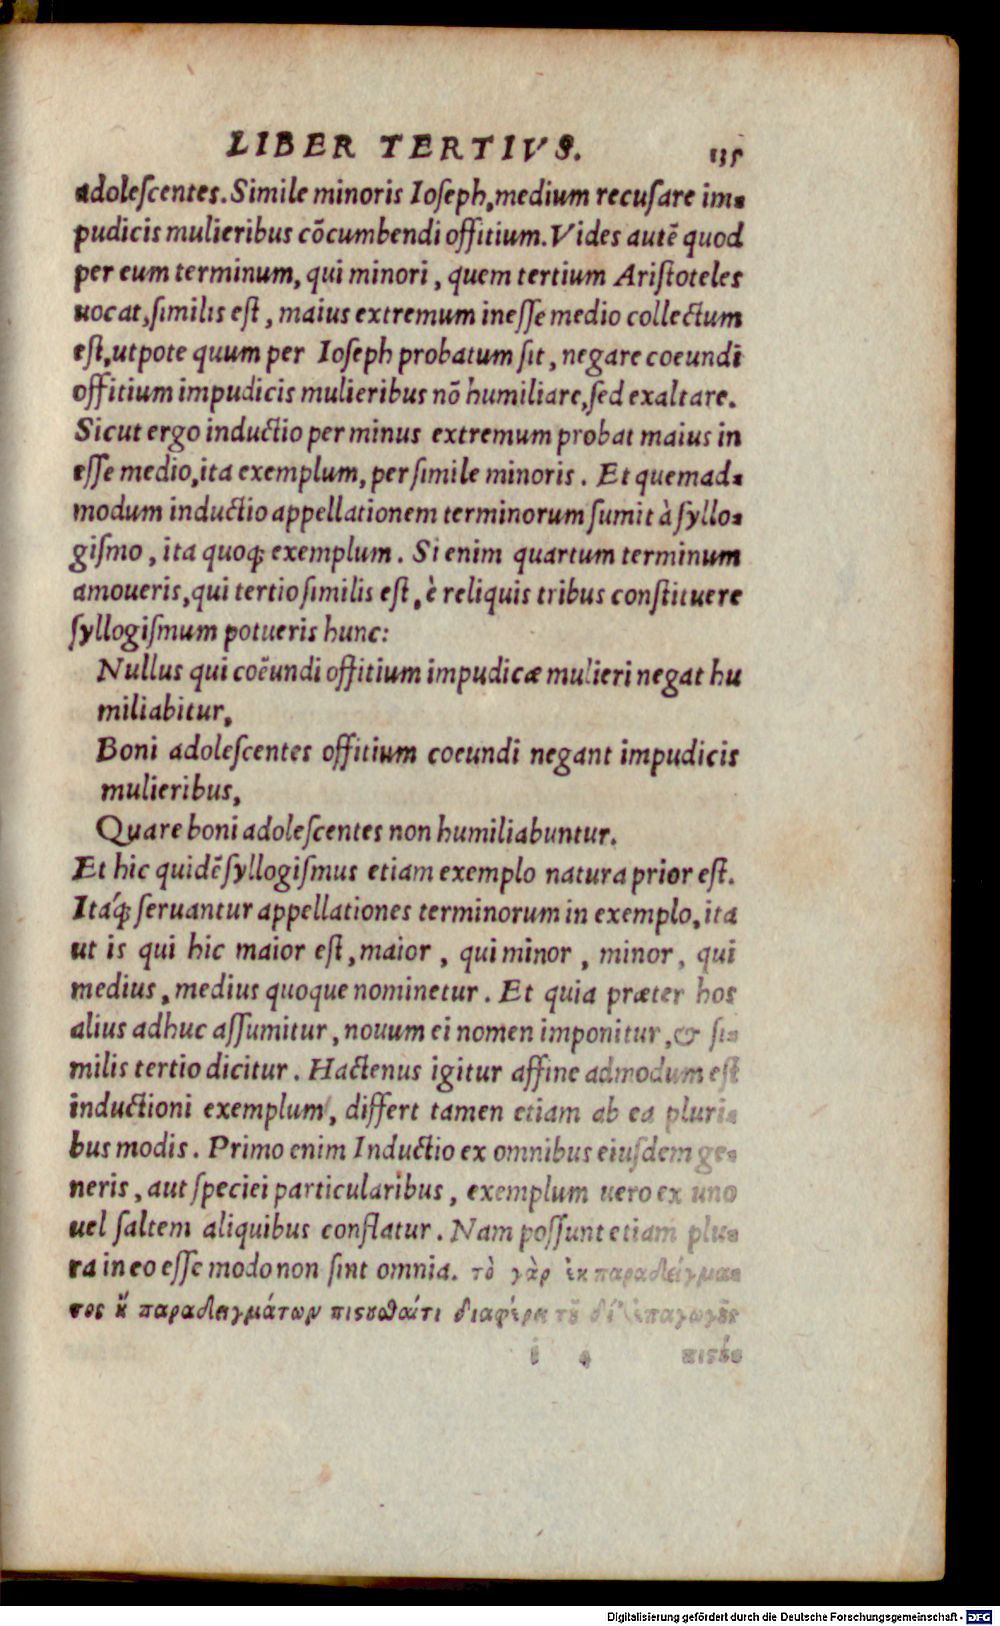 LIBER TERTIVS. 135
adolescentes. Simile minoris Ioseph, medium recusare im-
pudicis mulieribus cõcumbendi offitium. Vides autẽ quod
per eum terminum, qui minori, quem tertium Aristoteles
uocat, similis est, maius extremum inesse medio collectum
est, utpote quum per Ioseph probatum sit, negare coeundi
offitium impudicis mulieribus nõ humiliare, sed exaltare.
Sicut ergo inductio per minus extremum probat maius in
esse medio, ita exemplum, per simile minoris. Et quemad-
modum inductio appellationem terminorum sumit à syllo-
gismo, ita quoq; exemplum. Si enim quartum terminum
amoueris, qui tertio similis est, è reliquis tribus constituere
syllogismum potueris hunc:
Nullus qui coẽundi offitium impudicæ mulieri negat hu
miliabitur,
Boni adolescentes offitium coeundi negant impudicis
mulieribus,
Quare boni adolescentes non humiliabuntur.
Et hic quidẽ syllogismus etiam exemplo natura prior est.
Itáq; seruantur appellationes terminorum in exemplo, ita
ut is qui hic maior est, maior, qui minor, minor, qui
medius, medius quoque nominetur. Et quia præter hos
alius adhuc assumitur, nouum ei nomen imponitur, & si-
milis tertio dicitur. Hactenus igitur affine admodum est
inductioni exemplum, differt tamen etiam ab ea pluri-
bus modis. Primo enim Inductio ex omnibus eiusdem ge-
neris, aut speciei particularibus, exemplum uero ex uno
uel saltem aliquibus conflatur. Nam possunt etiam plu-
ra in eo esse modo non sint omnia. τὸ γὰρ ἐκ παραδείγμα-
τος ἢ παραδειγμάτων πιστοῦσθαί τι διαφέρει τοῦ δι' ἐπαγωγῆς
i 4 πιστού